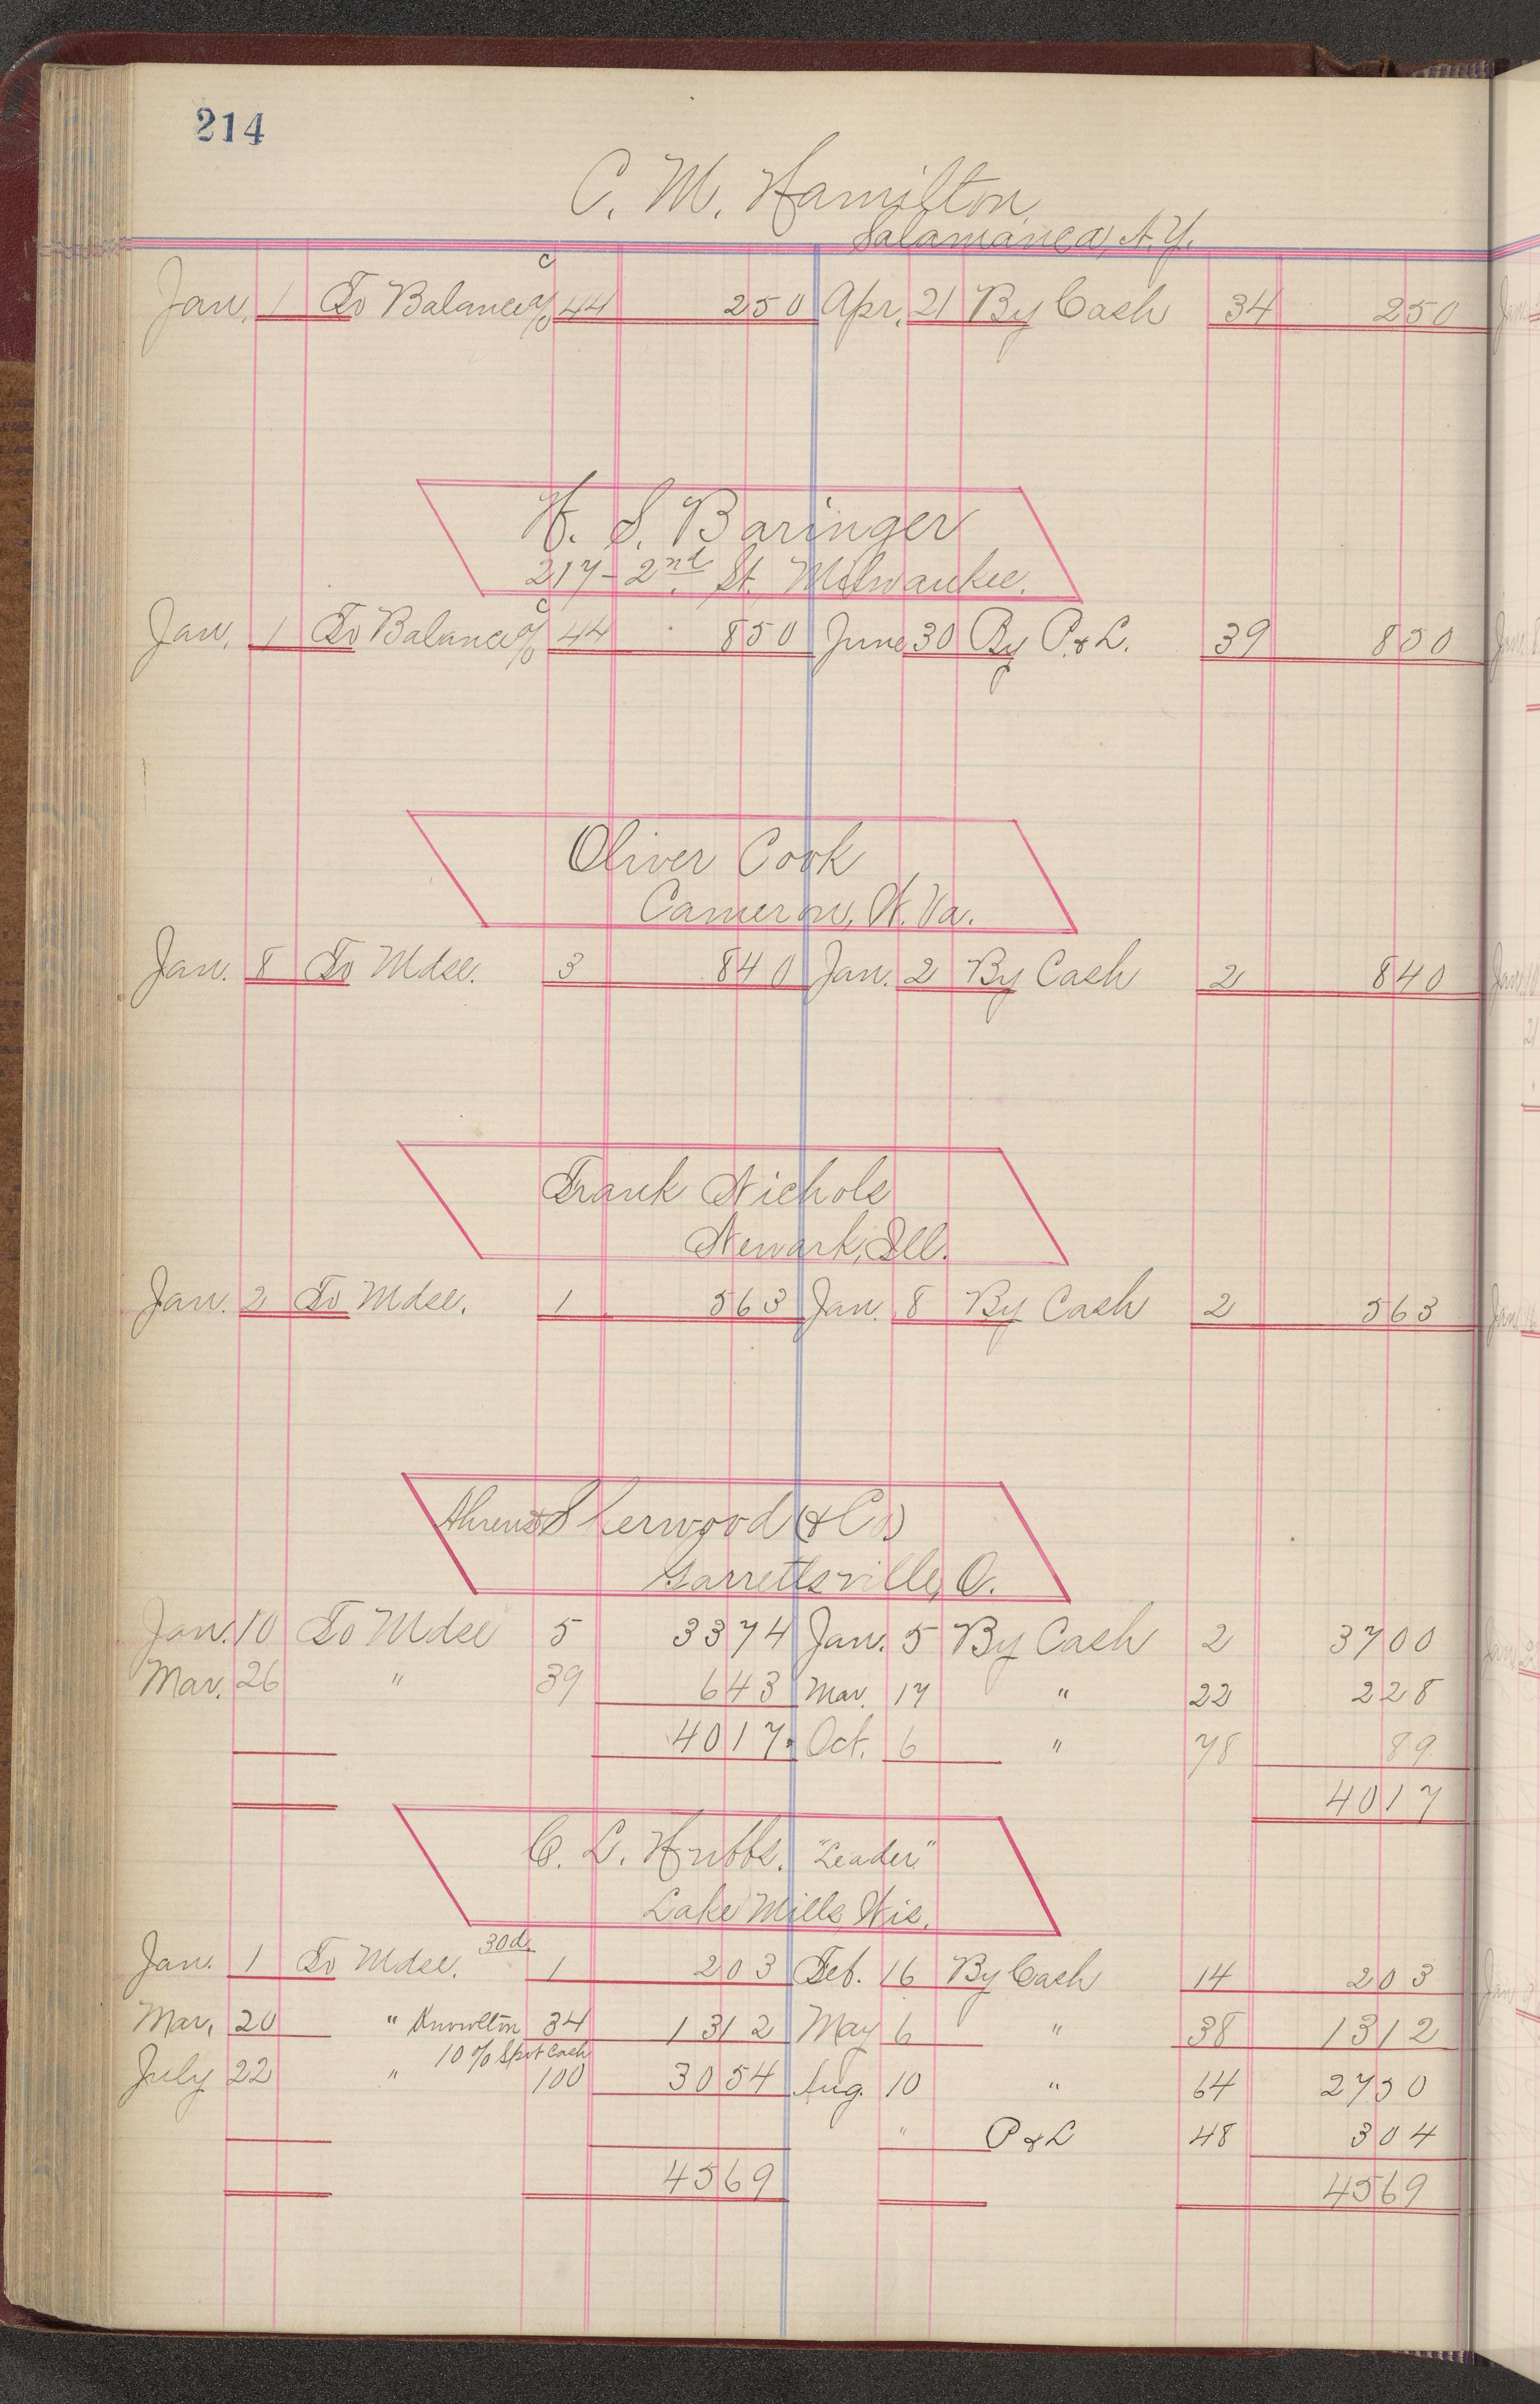 214
C. M. Hamilton
Salamanca, N.Y.
Jan. 1 To Balance a/c 44 250 Apr. 21 By Cash 34 250
H. S. Baringer
217 - 2nd St. Milwaukee.
Jan. 1 To Balance a/c 44 850 June 30 By P. & L. 39 850
Oliver Cook
Cameron, W. Va.
Jan. 8 To Mdse. 3 840 Jan. 2 By Cash 2 840
Frank Nichols
Newark, Ill.
Jan. 2 To Mdse. 1 563 Jan. 8 By Cash 2 563
Sherwood (& Co)
Garrettsville, O.
Jan. 10 To Mdse 5 3374 Jan. 5 By Cash 2 3700
Mar. 26 " 39 643 Mar. 17 " 22 228
4017 Oct. 6 " 78 89
4017
C. L. Hubbs. "Leader"
Lake Mills, Wis.
Jan. 1 To Mdse. 30d. 1 203 Feb. 16 By Cash 14 203
Mar. 20 " Knowlton 34 1312 May 6 " 38 1312
10% Spot Cash
July 22 " 100 3054 Aug. 10 " 64 2750
" P & L 48 304
4569 4569